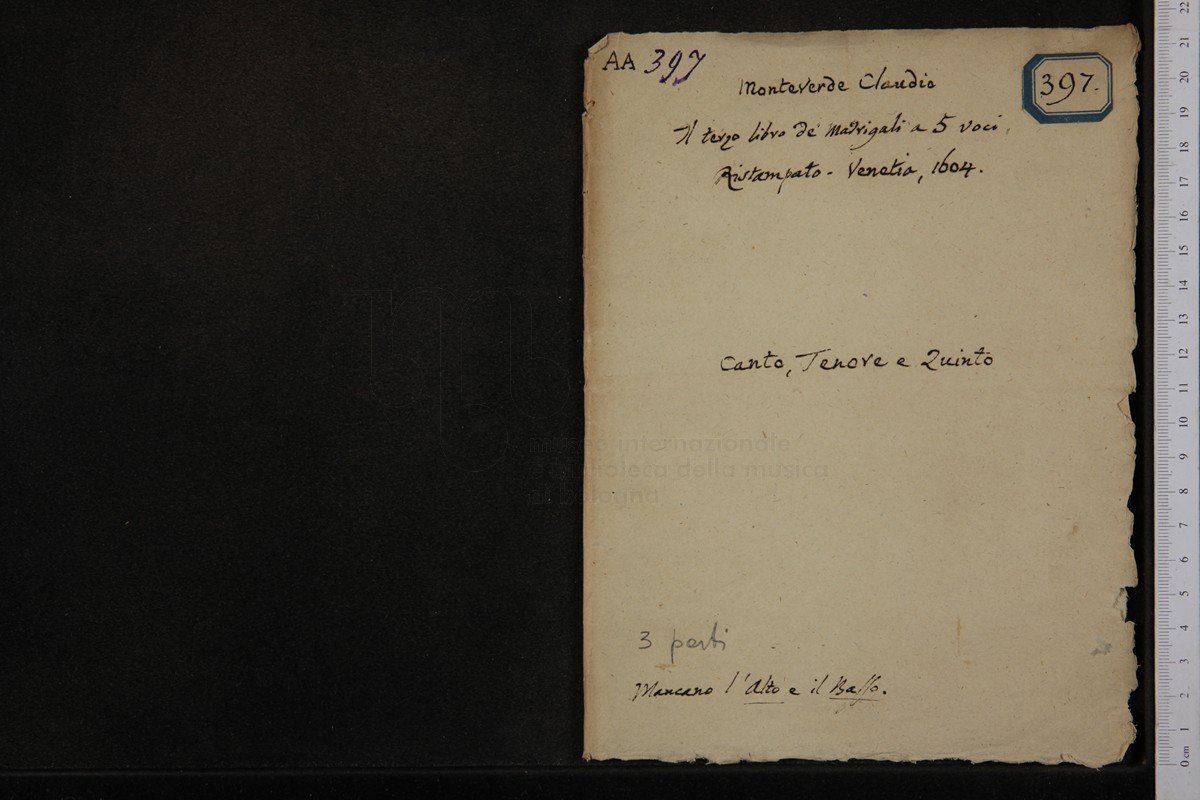 AA 397
397.
Monteverde Claudio
Il terzo libro de' Madrigali a 5 voci,
Ristampato - Venetia, 1604.
Canto, Tenore e Quinto
museo internazionale
e biblioteca della musica
di bologna
3 parti
Mancano l'Alto e il Basso.
22
21
20
19
18
17
16
15
14
13
12
11
10
9
8
7
6
5
4
3
2
1
0 cm